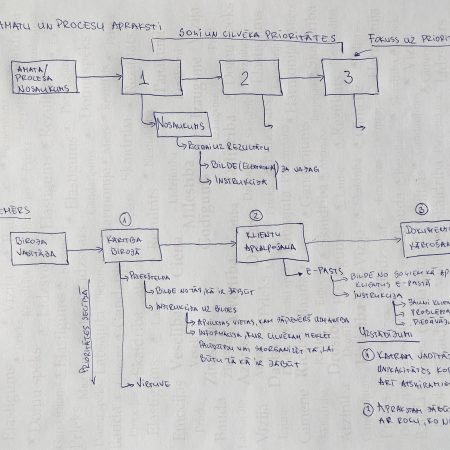 AMATU UN PROCESU APRAKSTI
SOĻI UN CILVĒKA PRIORITĀTES
FOKUSS UZ PRIORI
AMATA/
PROCESA
NOSAUKUMS
1
2
3
NOSAUKUMS
UZ REZULTĀTU
BILDE (ELEKTRONISKI) JA VAJAG
INSTRUKCIJA
EMĒRS
①
②
③
BIROJA
VADĪTĀJA
KĀRTĪBA
BIROJĀ
KLIENTU
APKALPOŠANA
DOKUMENTU
KĀRTOŠANA
PRIORITĀTES SECĪBĀ
PRIEKŠTELPA
BILDE NO TĀS, KĀ IR JĀBŪT
INSTRUKCIJA UZ BILDES
APVILKTAS VIETAS, KAM JĀPIEVĒRŠ UZMANĪBA
INFORMĀCIJA, KUR CILVĒKAM MEKLĒT
PALĪDZĪBU VAI SAORGANIZĒT TĀ, LAI
BŪTU TĀ KĀ IR JĀBŪT
VIRTUVE
E-PASTS
BILDE NO SOĻIEM KĀ AP
KLIENTUS E-PASTĀ
INSTRUKCIJA
JAUNI KLIEN
PROBLĒMA
PIEDĀVĀJ
UZSTĀDĪJUMI
① KATRAM VADĪTĀJ
UNIKALITĀTES
ARĪ ATŠĶIRAMIES
② APRAKSTAM
AR ROKU, KO